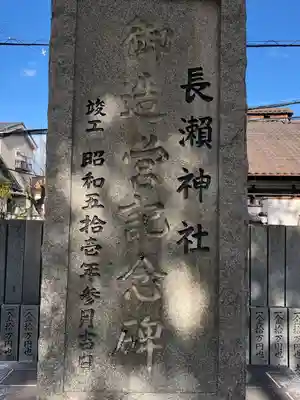 長瀬神社
御造営記念碑
竣工 昭和五拾壱年参月吉日